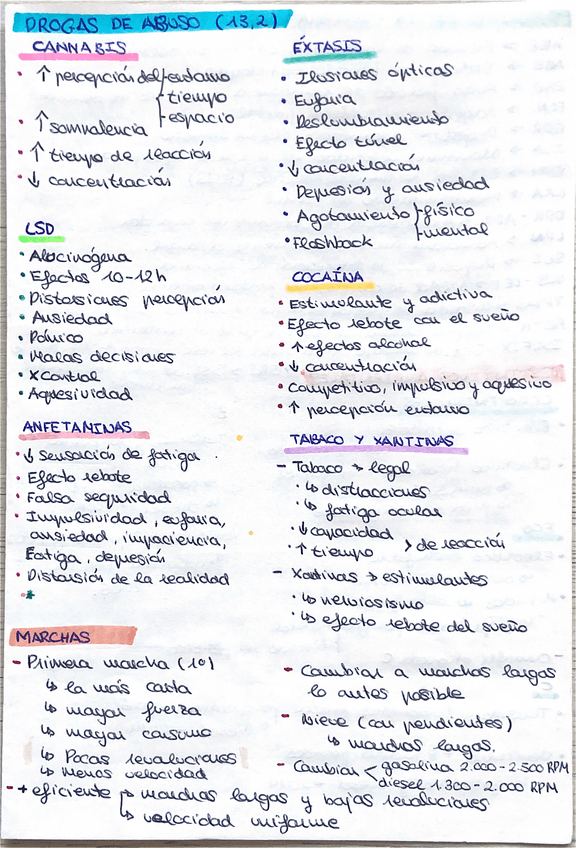 DROGAS DE ABUSO (13,2)
CANNABIS
• ↑ percepción del entorno
tiempo
espacio
• ↑ somnolencia
• ↑ tiempo de reacción
• ↓ concentración
LSD
• Alocinógena
• Efectos 10-12h
• Distorsiones percepción
• Ansiedad
• Pánico
• Malas decisiones
• X Control
• Agresividad
ANFETAMINAS
• ↓ sensación de fatiga
• Efecto rebote
• Falsa seguridad
• Impulsividad, euforia,
ansiedad, impaciencia,
Fatiga, depresión
• Distorsión de la realidad
*
ÉXTASIS
• Ilusiones ópticas
• Euforia
• Deslumbramiento
• Efecto túnel
• ↓ concentración
• Depresión y ansiedad
• Agotamiento físico
mental
• Flashback
COCAÍNA
• Estimulante y adictiva
• Efecto rebote con el sueño
• ↑ efectos alcohol
• ↓ concentración
• Competitivo, impulsivo y agresivo
• ↑ percepción entorno
TABACO Y XANTINAS
- Tabaco → legal
• ↳ distracciones
• ↳ fatiga ocular
• ↓ capacidad
• ↑ tiempo > de reacción
- Xantinas → estimulantes
• ↳ nerviosismo
• ↳ efecto rebote del sueño
MARCHAS
- Primera marcha (1º)
↳ la más corta
↳ mayor fuerza
↳ mayor consumo
↳ Pocas revoluciones
↳ Menos velocidad
- + eficiente ↳ marchas largas y bajas revoluciones
↳ velocidad uniforme
- Cambiar a marchas largas
lo antes posible
- Nieve (con pendientes)
↳ marchas largas.
- Cambiar < gasolina 2.000-2.500 RPM
diesel 1.300-2.000 RPM